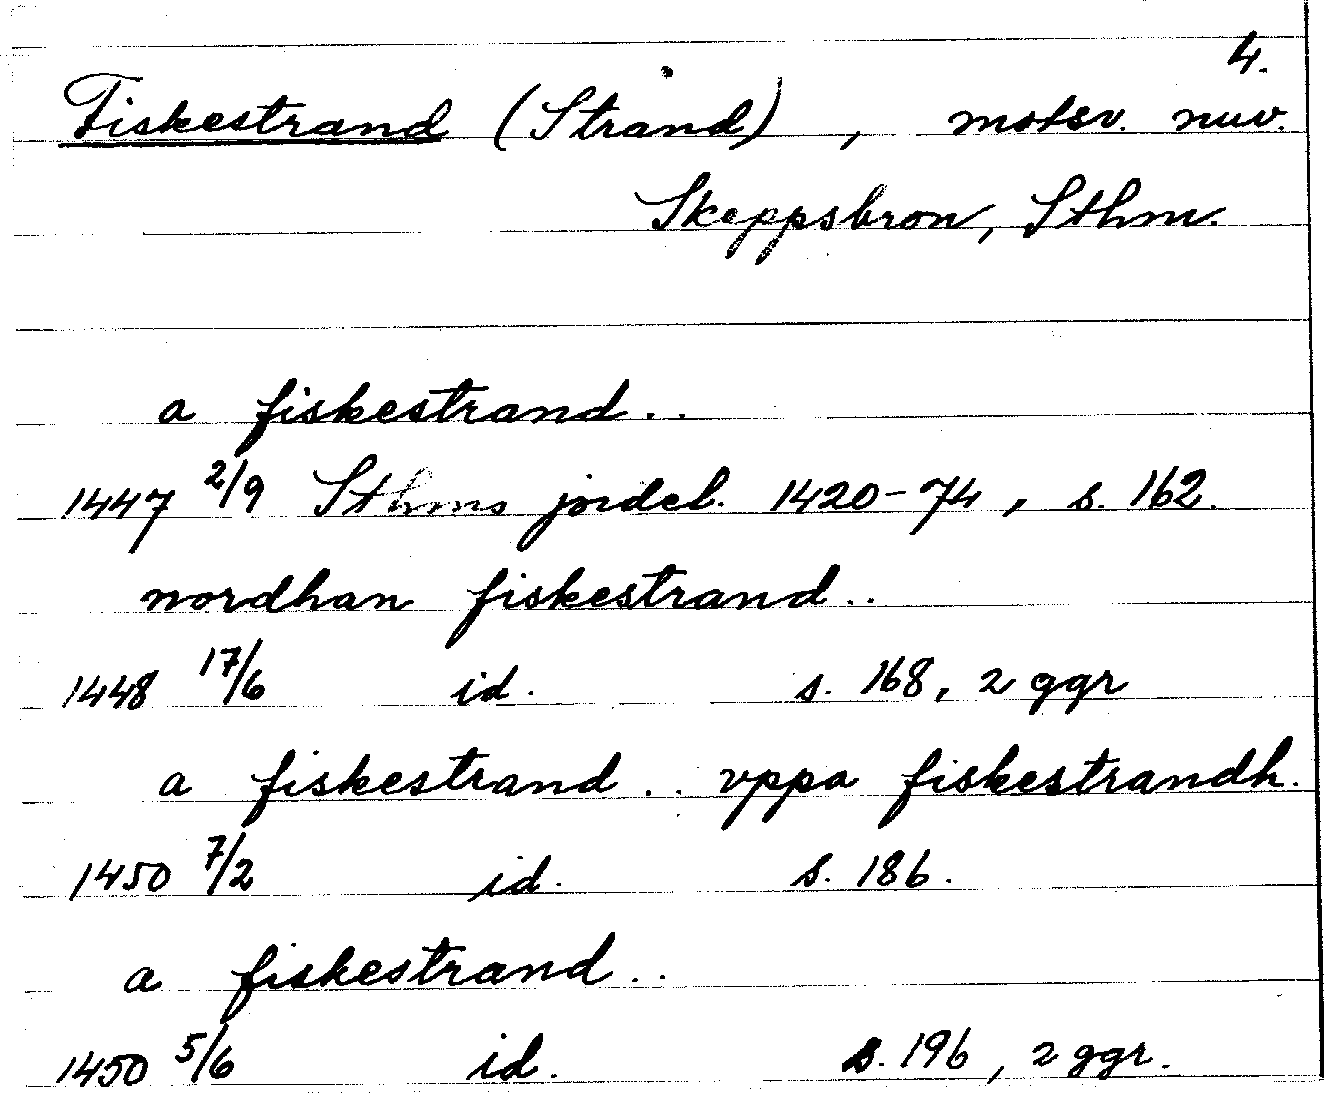 4.
Fiskestrand (Strand), motsv. nuv.
Skeppsbron, Sthm.
a fiskestrand..
1447 2/9 Sthms jordeb. 1420-74, s. 162.
nordhan fiskestrand..
1448 17/6 id. s. 168, 2 ggr
a fiskestrand.. vppa fiskestrandh.
1450 7/2 id. s. 186.
a fiskestrand..
1450 5/6 id. s. 196, 2 ggr.